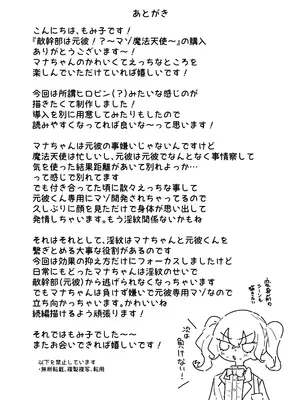 あとがき
こんにちは、もみ子です！
『敵幹部は元彼！？～マゾ魔法天使～』の購入
ありがとうございます～！
マナちゃんのかわいくてえっちなところを
楽しんでいただけていれば嬉しいです！
今回は所謂ヒロピン（？）みたいな感じのが
描きたくて制作しました！
導入を別に用意してみたりもしたので
読みやすくなってれば良いな～って思います！
マナちゃんは元彼の事嫌いじゃないんですけど
魔法天使は忙しいし、元彼は元彼でなんとなく事情察して
気を使った結果距離があいて別れよっか…
って感じで別れてます
でも付き合ってた頃に散々えっちな事して
元彼くん専用にマゾ開発されちゃってるので
久しぶりに顔を見ただけで身体が思い出して
発情しちゃいます。もう淫紋関係ないかもね
それはそれとして、淫紋はマナちゃんと元彼くんを
繋ぎとめる大事な役割があるのです
今回は効果の抑え方だけにフォーカスしましたけど
日常にもどったマナちゃんは淫紋のせいで
敵幹部(元彼)から逃げられなくなっちゃいます
でもマナちゃんは負けず嫌いで元彼専用マゾなので
立ち向かっちゃいます。かわいいね
続編描けるよう頑張ります！
それではもみ子でした～～
またお会いできれば嬉しいです！
以下を禁止しています
・無断転載、複製複写、転用
次は
負けない！！